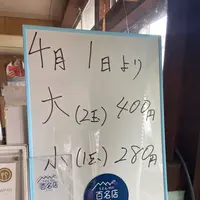 4月1日より
大(2玉)400円
小(1玉)280円
百名店
百名店